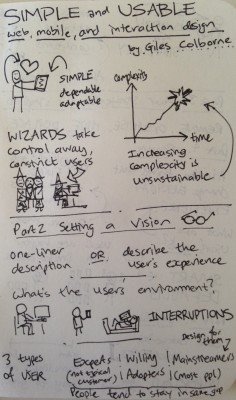 SIMPLE and USABLE
web, mobile, and interaction design
by Giles Colborne
SIMPLE
dependable
adaptable
complexity
time
WIZARDS take
control away,
constrict users
Increasing
complexity is
unsustainable
Part 2 Setting a Vision
one-liner
description
OR
describe the
user's experience
What's the users' environment?
INTERRUPTIONS
Design for
them
3 types
of USER
Experts | Willing | Mainstreamers
(not typical
customer)
Adopters
(most ppl)
People tend to stay in same grp